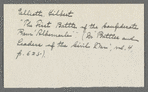 Elliott, Gilbert
"The First Battle of the Confederate
Ram 'Albemarle'" (In "Battles and
Leaders of the Civil War," vol. 4
p. 625.)